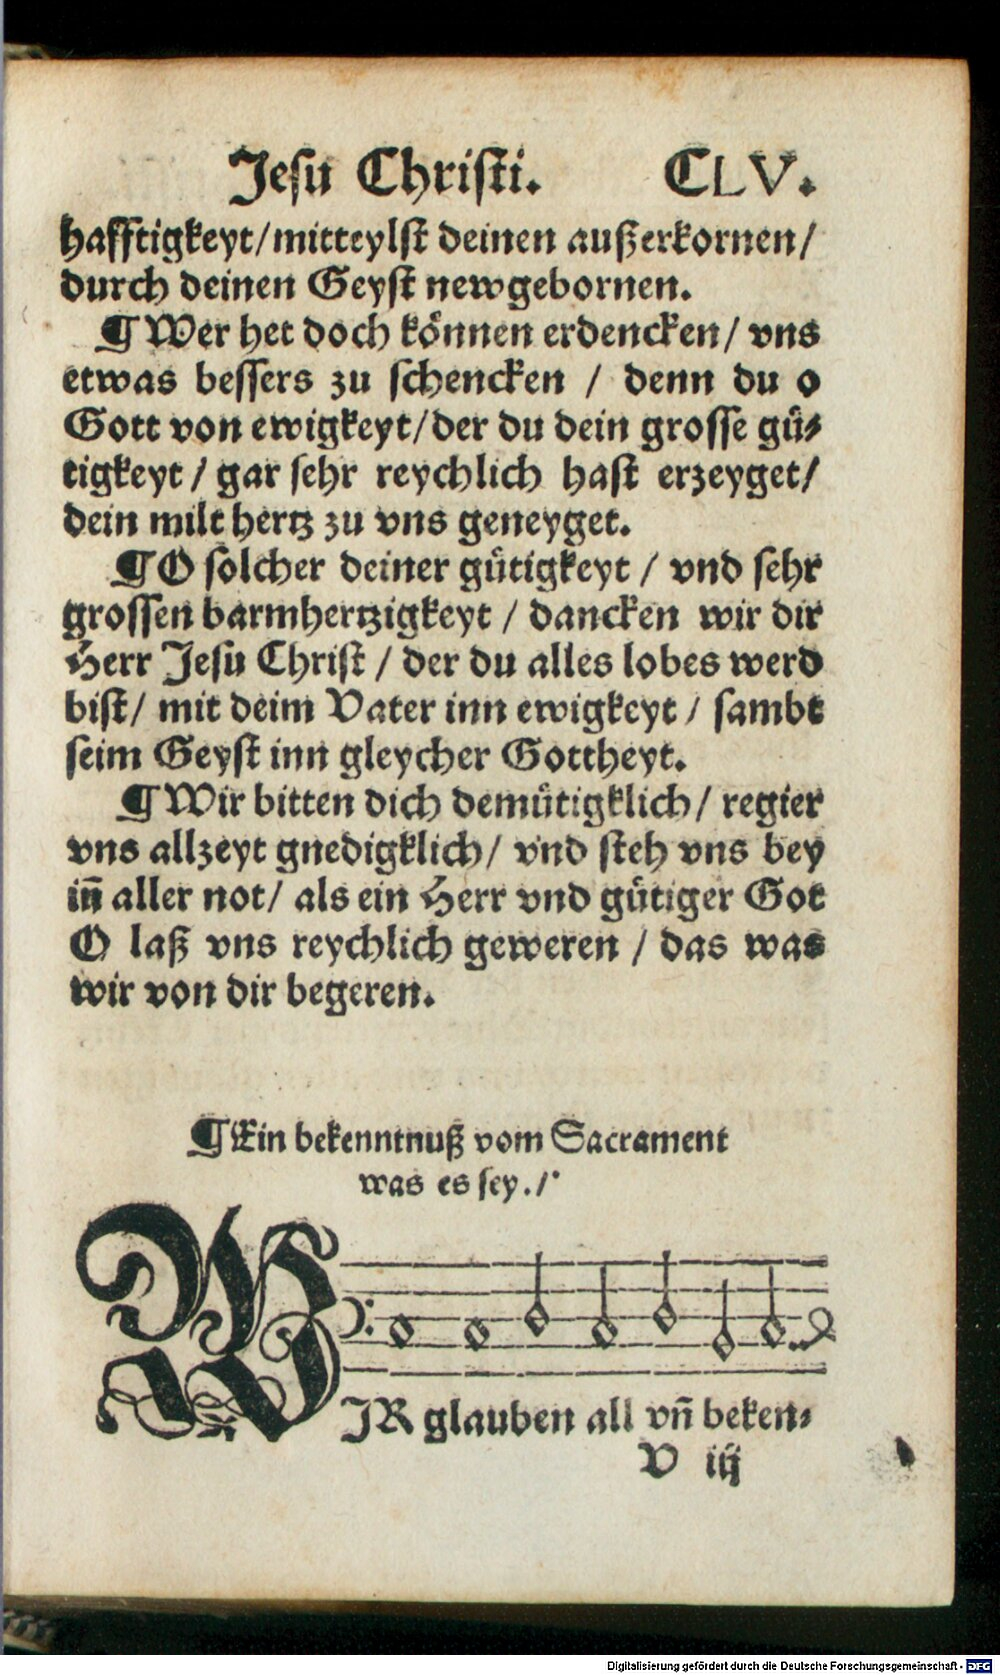 Jesu Christi. CLV.
hafftigkeyt/mitteylst deinen außerkornen/
durch deinen Geyst newgebornen.
¶ Wer het doch koͤnnen erdencken/ vns
etwas bessers zu schencken / denn du o
Gott von ewigkeyt/der du dein grosse guͤ⸗
tigkeyt / gar sehr reychlich hast erzeyget/
dein milt hertz zu vns geneyget.
¶ O solcher deiner guͤtigkeyt / vnd sehr
grossen barmhertzigkeyt / dancken wir dir
Herr Jesu Christ / der du alles lobes werd
bist/ mit deim Vater inn ewigkeyt / sambt
seim Geyst inn gleycher Gottheyt.
¶ Wir bitten dich demuͤtigklich/ regier
vns allzeyt gnedigklich/ vnd steh vns bey
in̄ aller not/ als ein Herr vnd guͤtiger Got
O laß vns reychlich geweren / das was
wir von dir begeren.
¶ Ein bekenntnuß vom Sacrament
was es sey./·
WIR glauben all vn̄ beken⸗
V iij
Digitalisierung gefördert durch die Deutsche Forschungsgemeinschaft - DFG